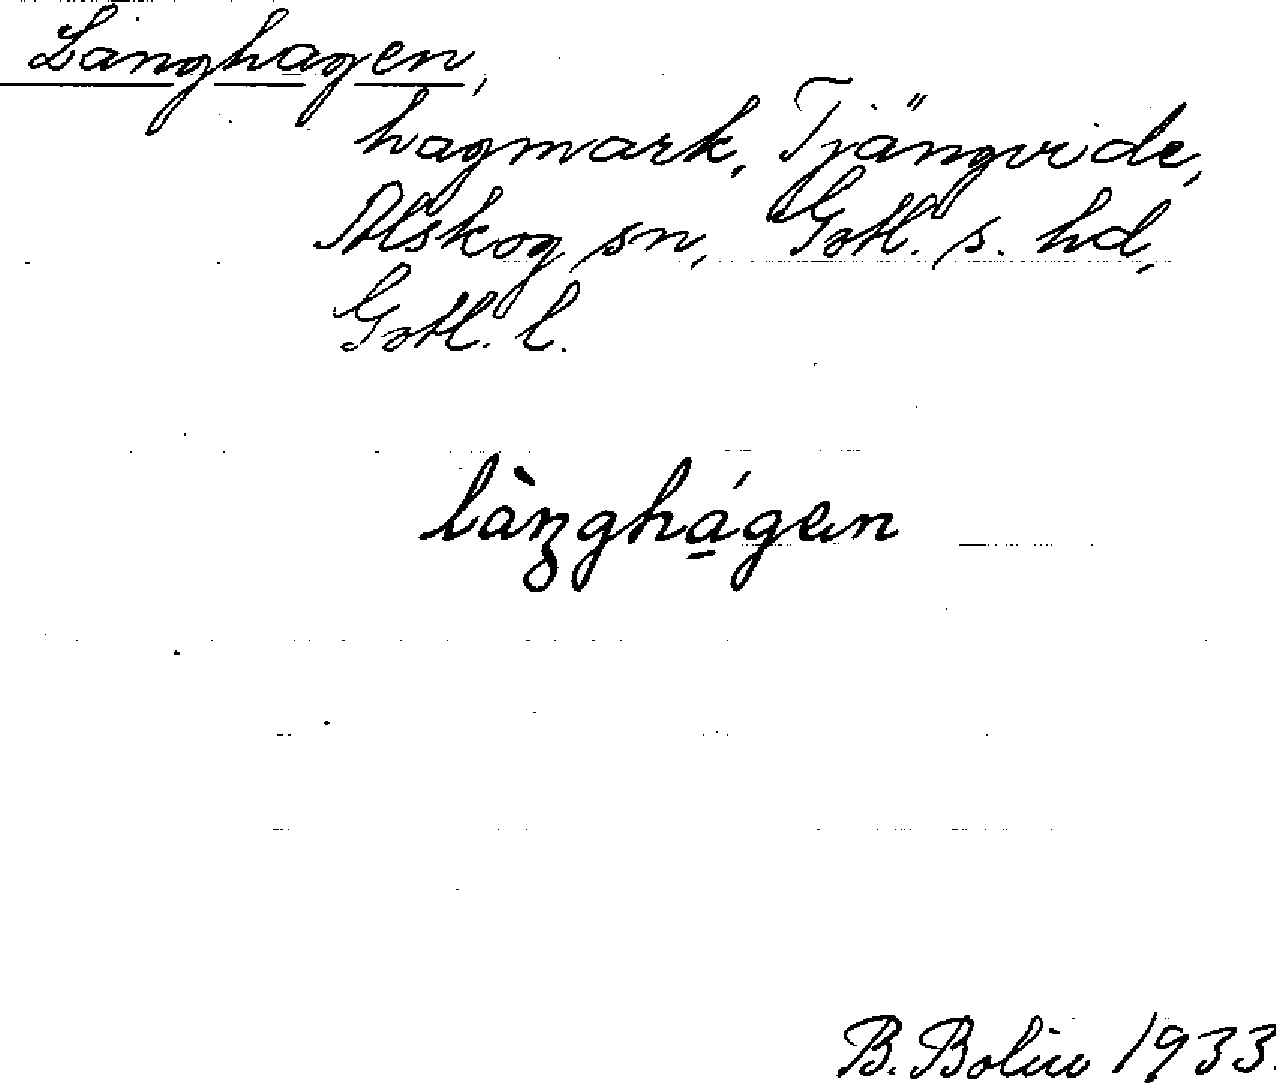 Långhagen,
hagmark, Tjängvide,
Alskog sn, Gotl. s. hd,
Gotl. l.
làŋghá̱gεn
B. Bolin 1933.